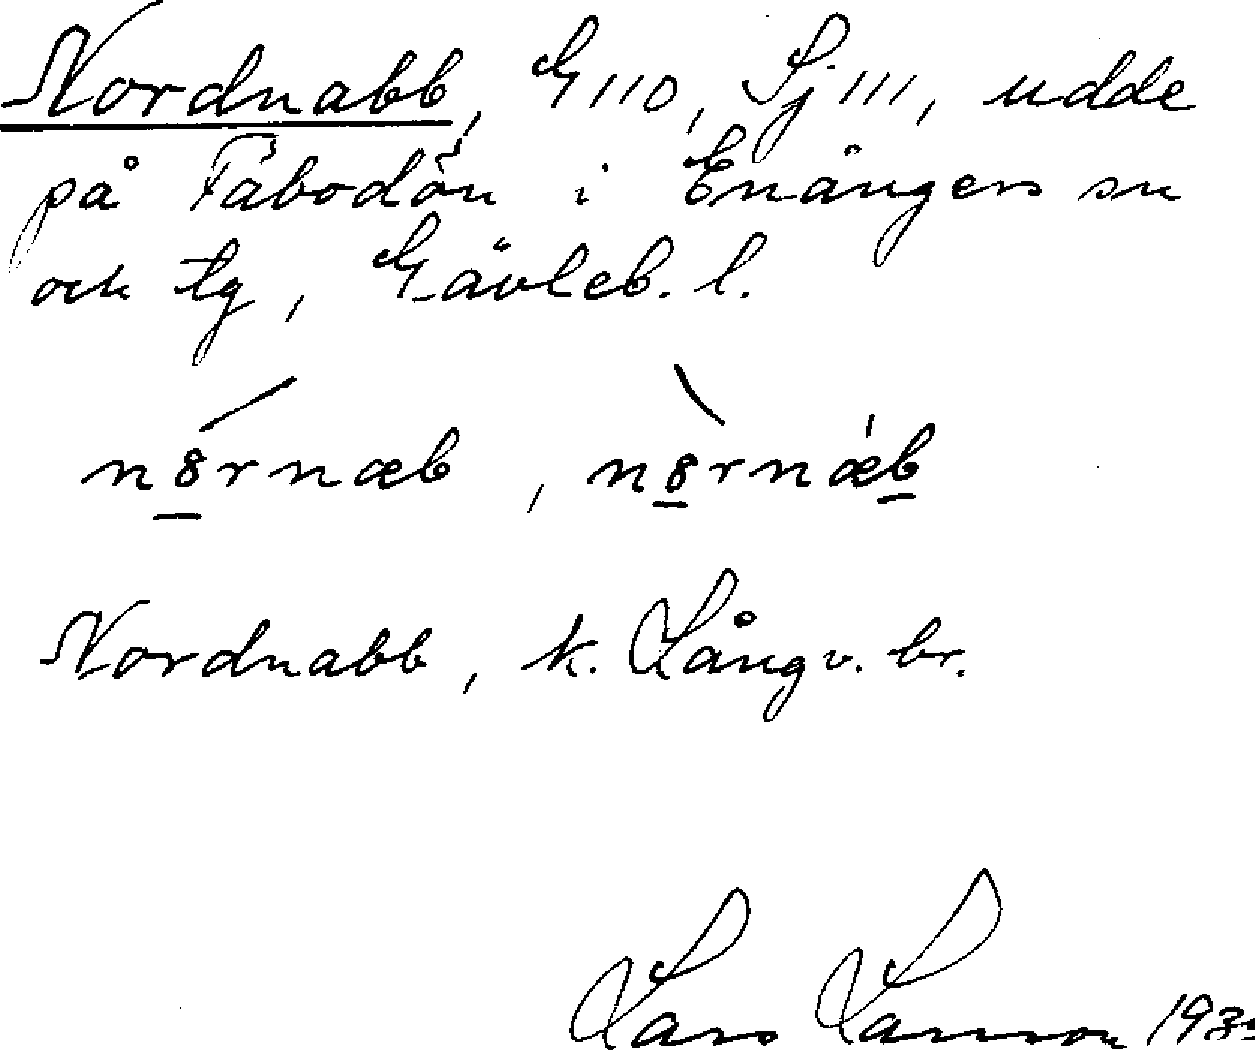 Nordnabb, G 110, Sj 111, udde
på Fäbodön i Enångers sn
och tg, Gävleb. l.
Nordnabb, k. Långv. br.
Lars Larsson